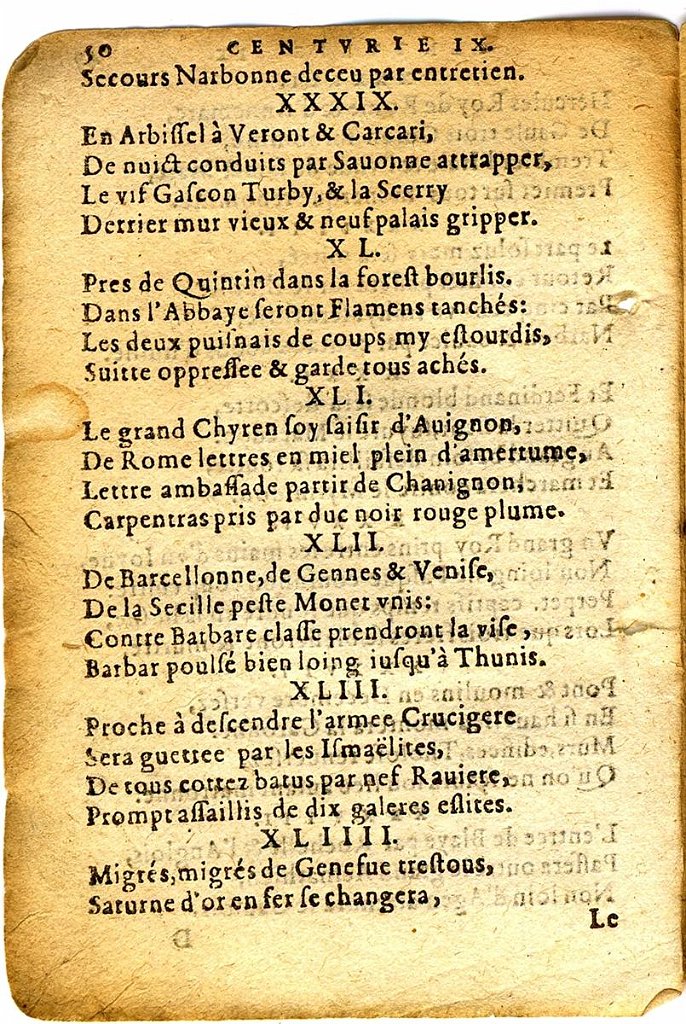 50 CENTVRIE IX.
Secours Narbonne deceu par entretien.
XXXIX.
En Arbiſſel à Veront & Carcari,
De nuict conduits par Sauonne attrapper,
Le vif Gaſcon Turby, & la Scerry
Derrier mur vieux & neuf palais gripper.
XL.
Pres de Quintin dans la foreſt bourlis.
Dans l'Abbaye ſeront Flamens tanchés:
Les deux puiſnais de coups my eſtourdis,
Suitte oppreſſee & garde tous achés.
XLI.
Le grand Chyren ſoy ſaiſir d'Auignon,
De Rome lettres en miel plein d'amertume,
Lettre ambaſſade partir de Chanignon,
Carpentras pris par duc noir rouge plume.
XLII.
De Barcellonne, de Gennes & Veniſe,
De la Secille peſte Monet vnis:
Contre Barbare claſſe prendront la viſe,
Barbar poulſé bien loing iuſqu'à Thunis.
XLIII.
Proche à deſcendre l'armee Crucigere
Sera guettee par les Iſmaëlites,
De tous cottez batus par nef Rauiere,
Prompt aſſaillis de dix galeres eſlites.
XLIIII.
Migrés, migrés de Geneſue treſtous,
Saturne d'or en fer ſe changera,
Le